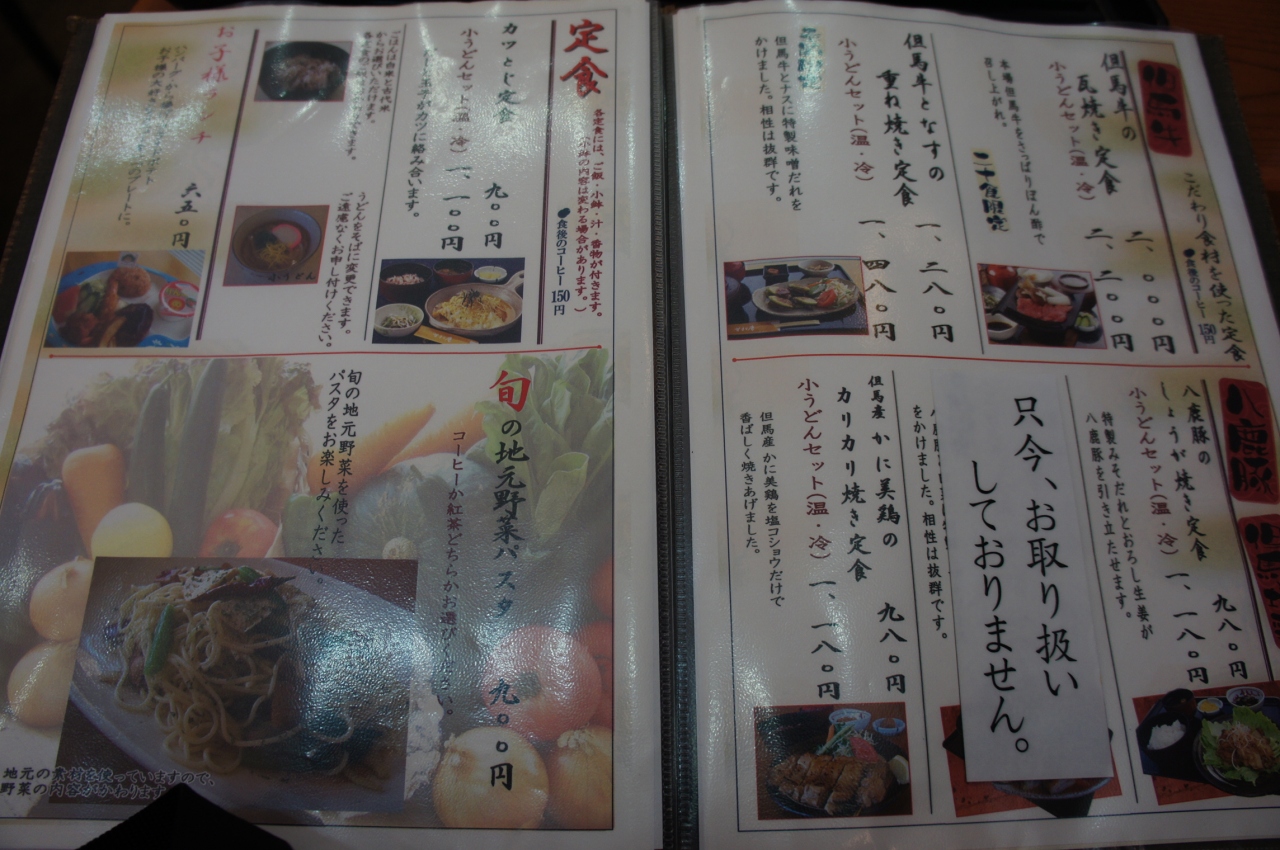 但馬牛
こだわり食材を使った定食
●食後のコーヒー 150円
但馬牛の
瓦焼き定食 二、〇〇〇円
小うどんセット(温・冷) 二、二〇〇円
本場但馬牛をさっぱりぽん酢で
召し上がれ。
二十食限定
但馬牛となすの
重ね焼き定食 一、二八〇円
小うどんセット(温・冷) 一、四八〇円
但馬牛とナスに特製味噌だれを
かけました。相性は抜群です。
八鹿豚
八鹿豚の
しょうが焼き定食 九八〇円
小うどんセット(温・冷) 一、一八〇円
特製みそだれとおろし生姜が
八鹿豚を引き立たせます。
只今、お取り扱い
しておりません。
をかけました。相性は抜群です。
但馬産 かに美鶏の
カリカリ焼き定食 九八〇円
小うどんセット(温・冷) 一、一八〇円
但馬産 かに美鶏を塩コショウだけで
香ばしく焼きあげました。
定食
各定食には、ご飯・小鉢・汁・香物が付きます。
(小鉢の内容は変わる場合があります。)
●食後のコーヒー 150円
カツとじ定食 九〇〇円
小うどんセット(温・冷) 一、一〇〇円
玉子がカツに絡み合います。
ごはんは赤米と古代米
からお選びいただけます。
うどんをそばに変更できます。
ご遠慮なくお申し付けください。
小うどん
お子様ランチ 六五〇円
旬の地元野菜パスタ 九〇〇円
コーヒーか紅茶どちらかお選びください。
旬の地元野菜を使った
パスタをお楽しみください。
地元の素材を使っていますので、
野菜の内容がかわります